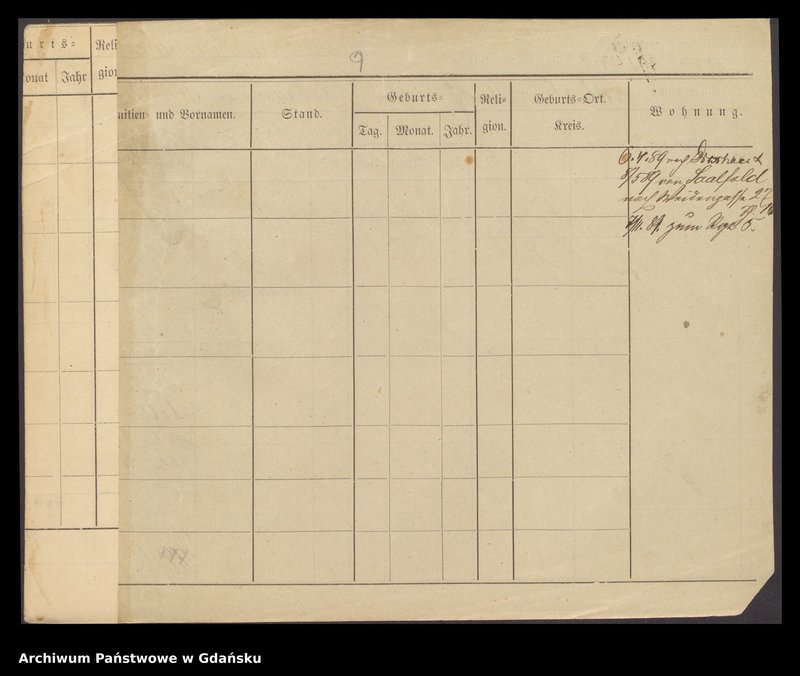 urts-
Reli
onat Jahr
gion
9
milien- und Vornamen.
Stand.
Geburts-
Tag. Monat. Jahr.
Reli-
gion.
Geburts-Ort.
Kreis.
Wohnung.
6.4.89 nach
8/5 89 von Saalfeld
nach Weidengasse 27
89. zum 5.
Archiwum Państwowe w Gdańsku